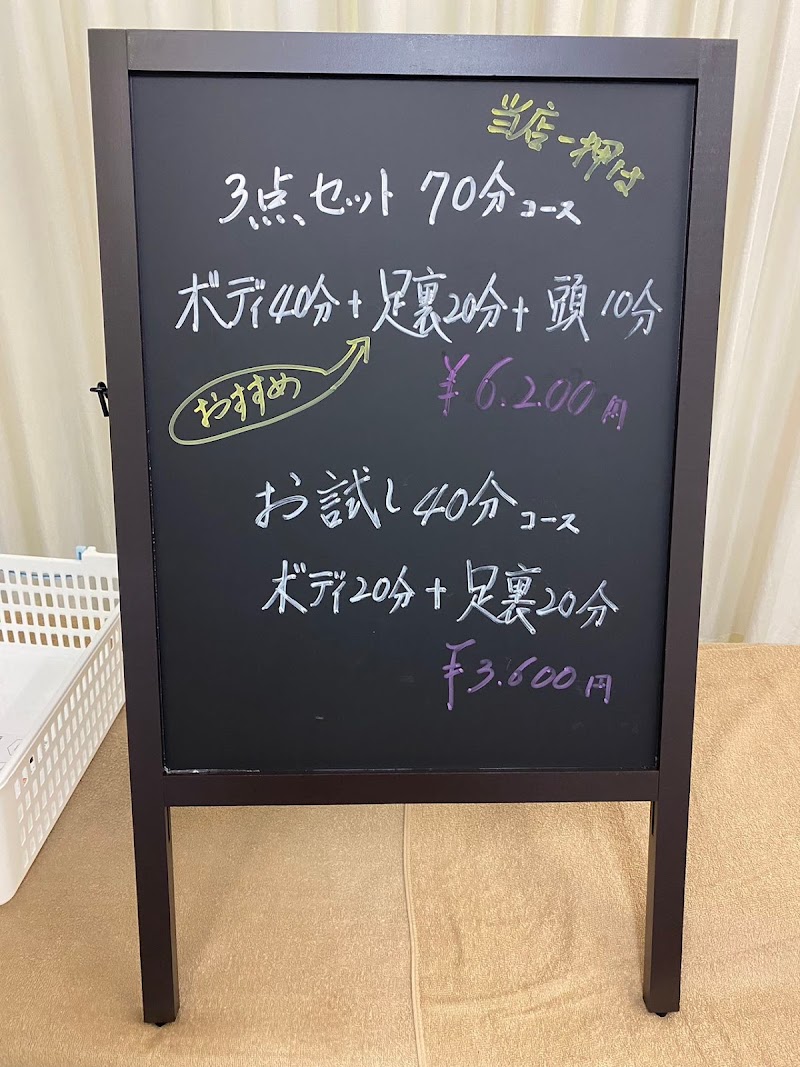 当店一押は
3点セット 70分コース
ボディ40分+足裏20分+頭10分
おすすめ
¥6.200円
お試し40分コース
ボディ20分+足裏20分
¥3.600円